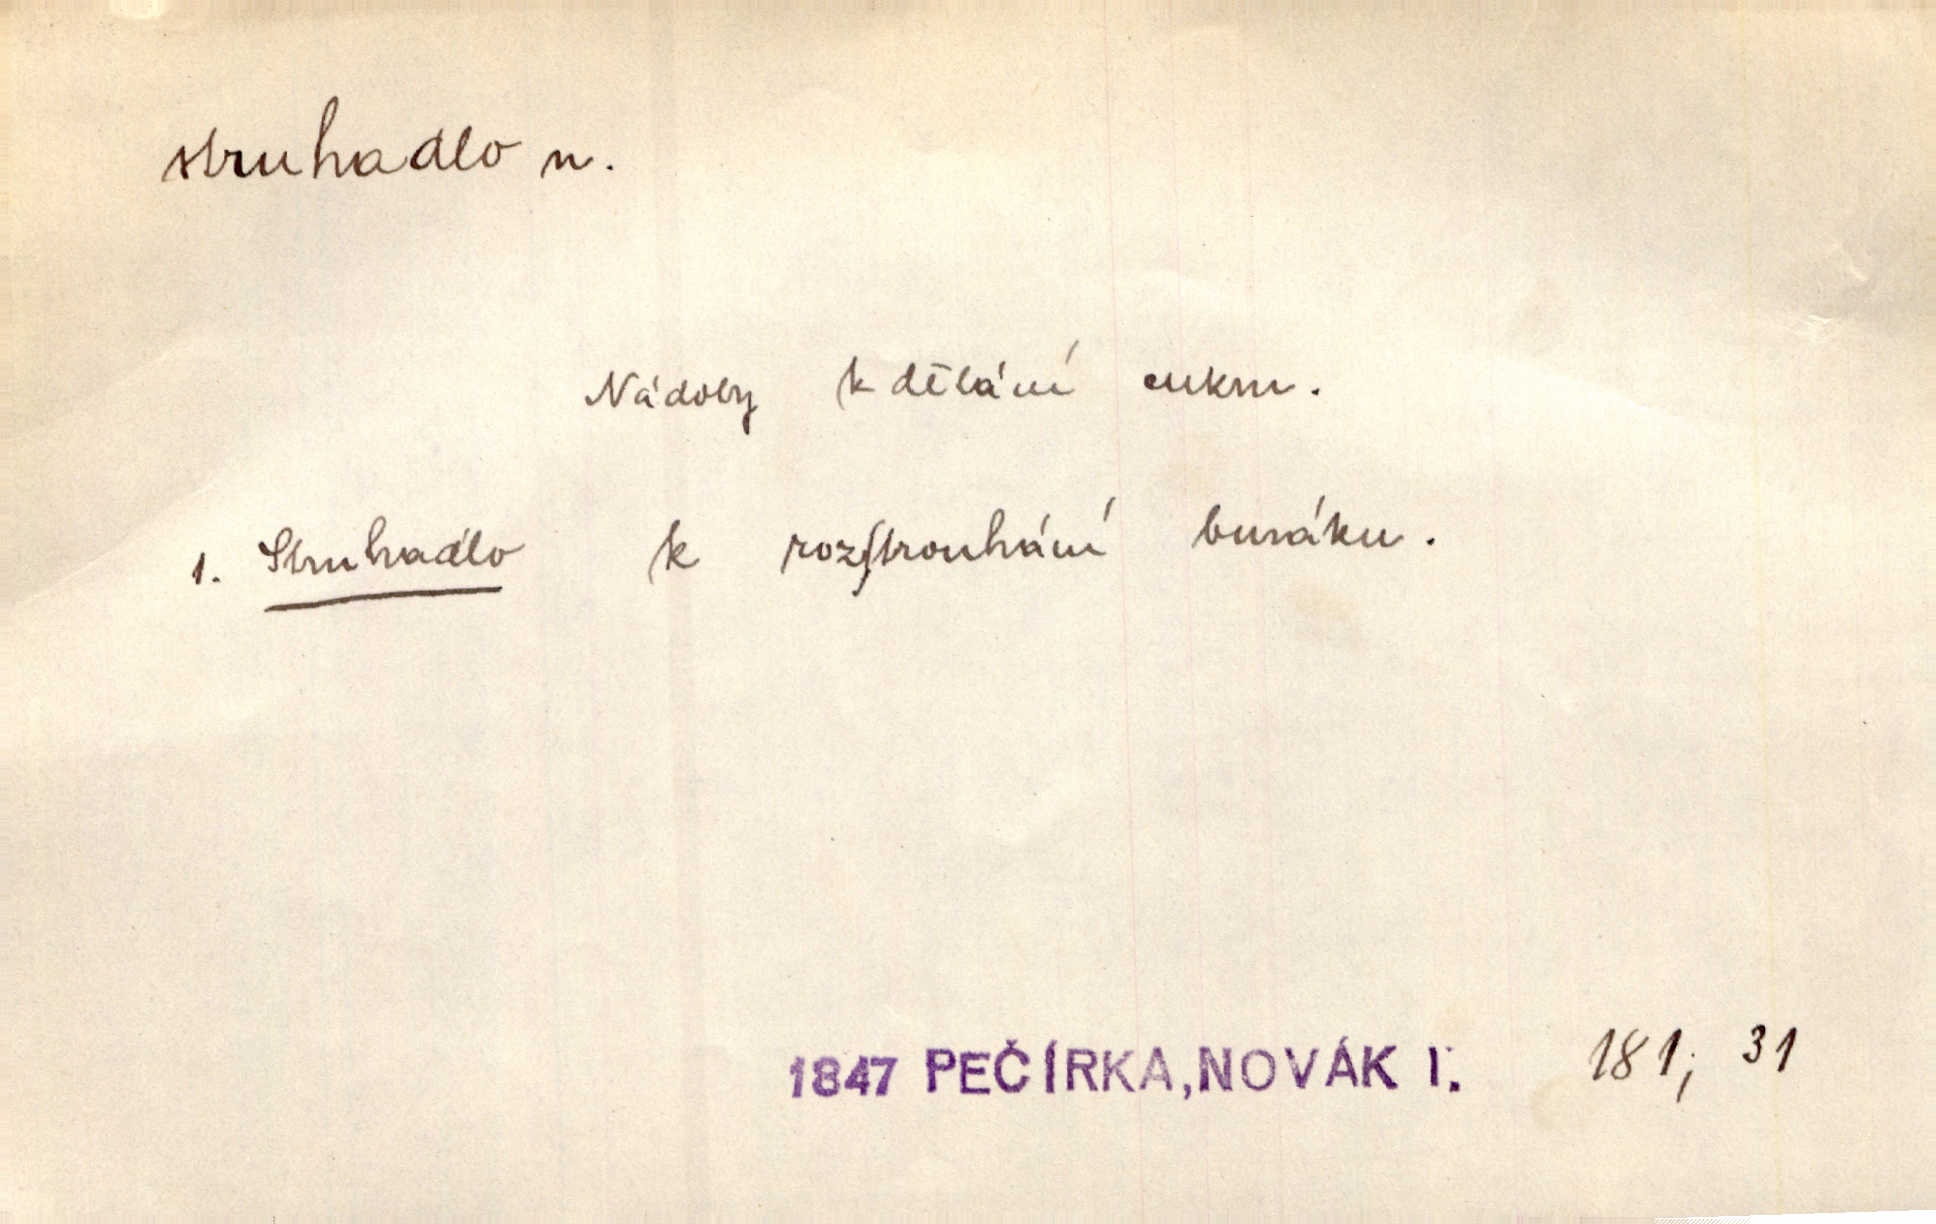 struhadlo n.
Nádoby k dělání cukru.
1. Struhadlo k rozſtrouhání buráku.
1847 PEČÍRKA, NOVÁK I. 181, 31